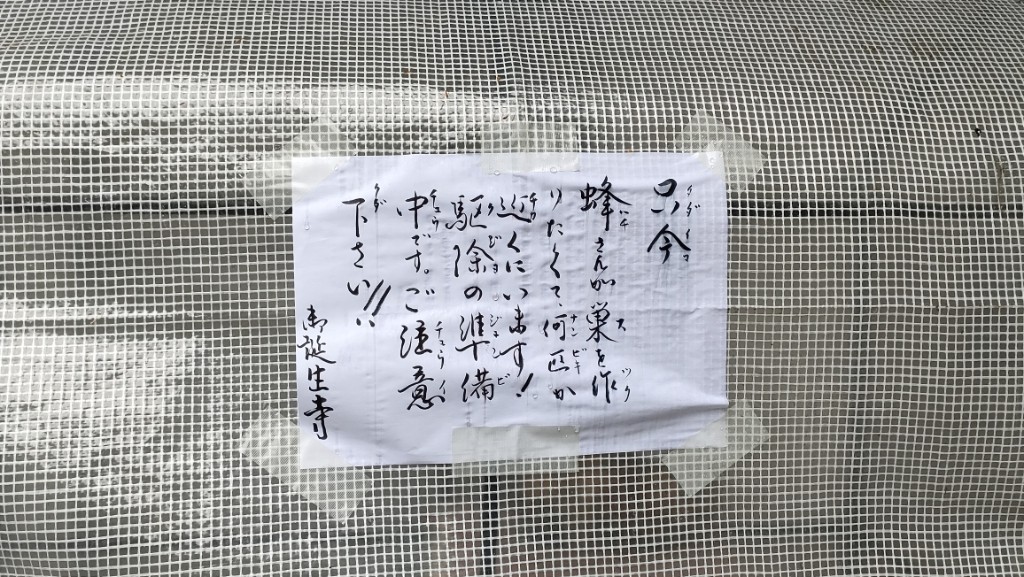 只今
蜂さんが巣を作
りたくて、何匹か
近くにいます!
駆除の準備
中です。ご注意
下さい!!
御誕生寺